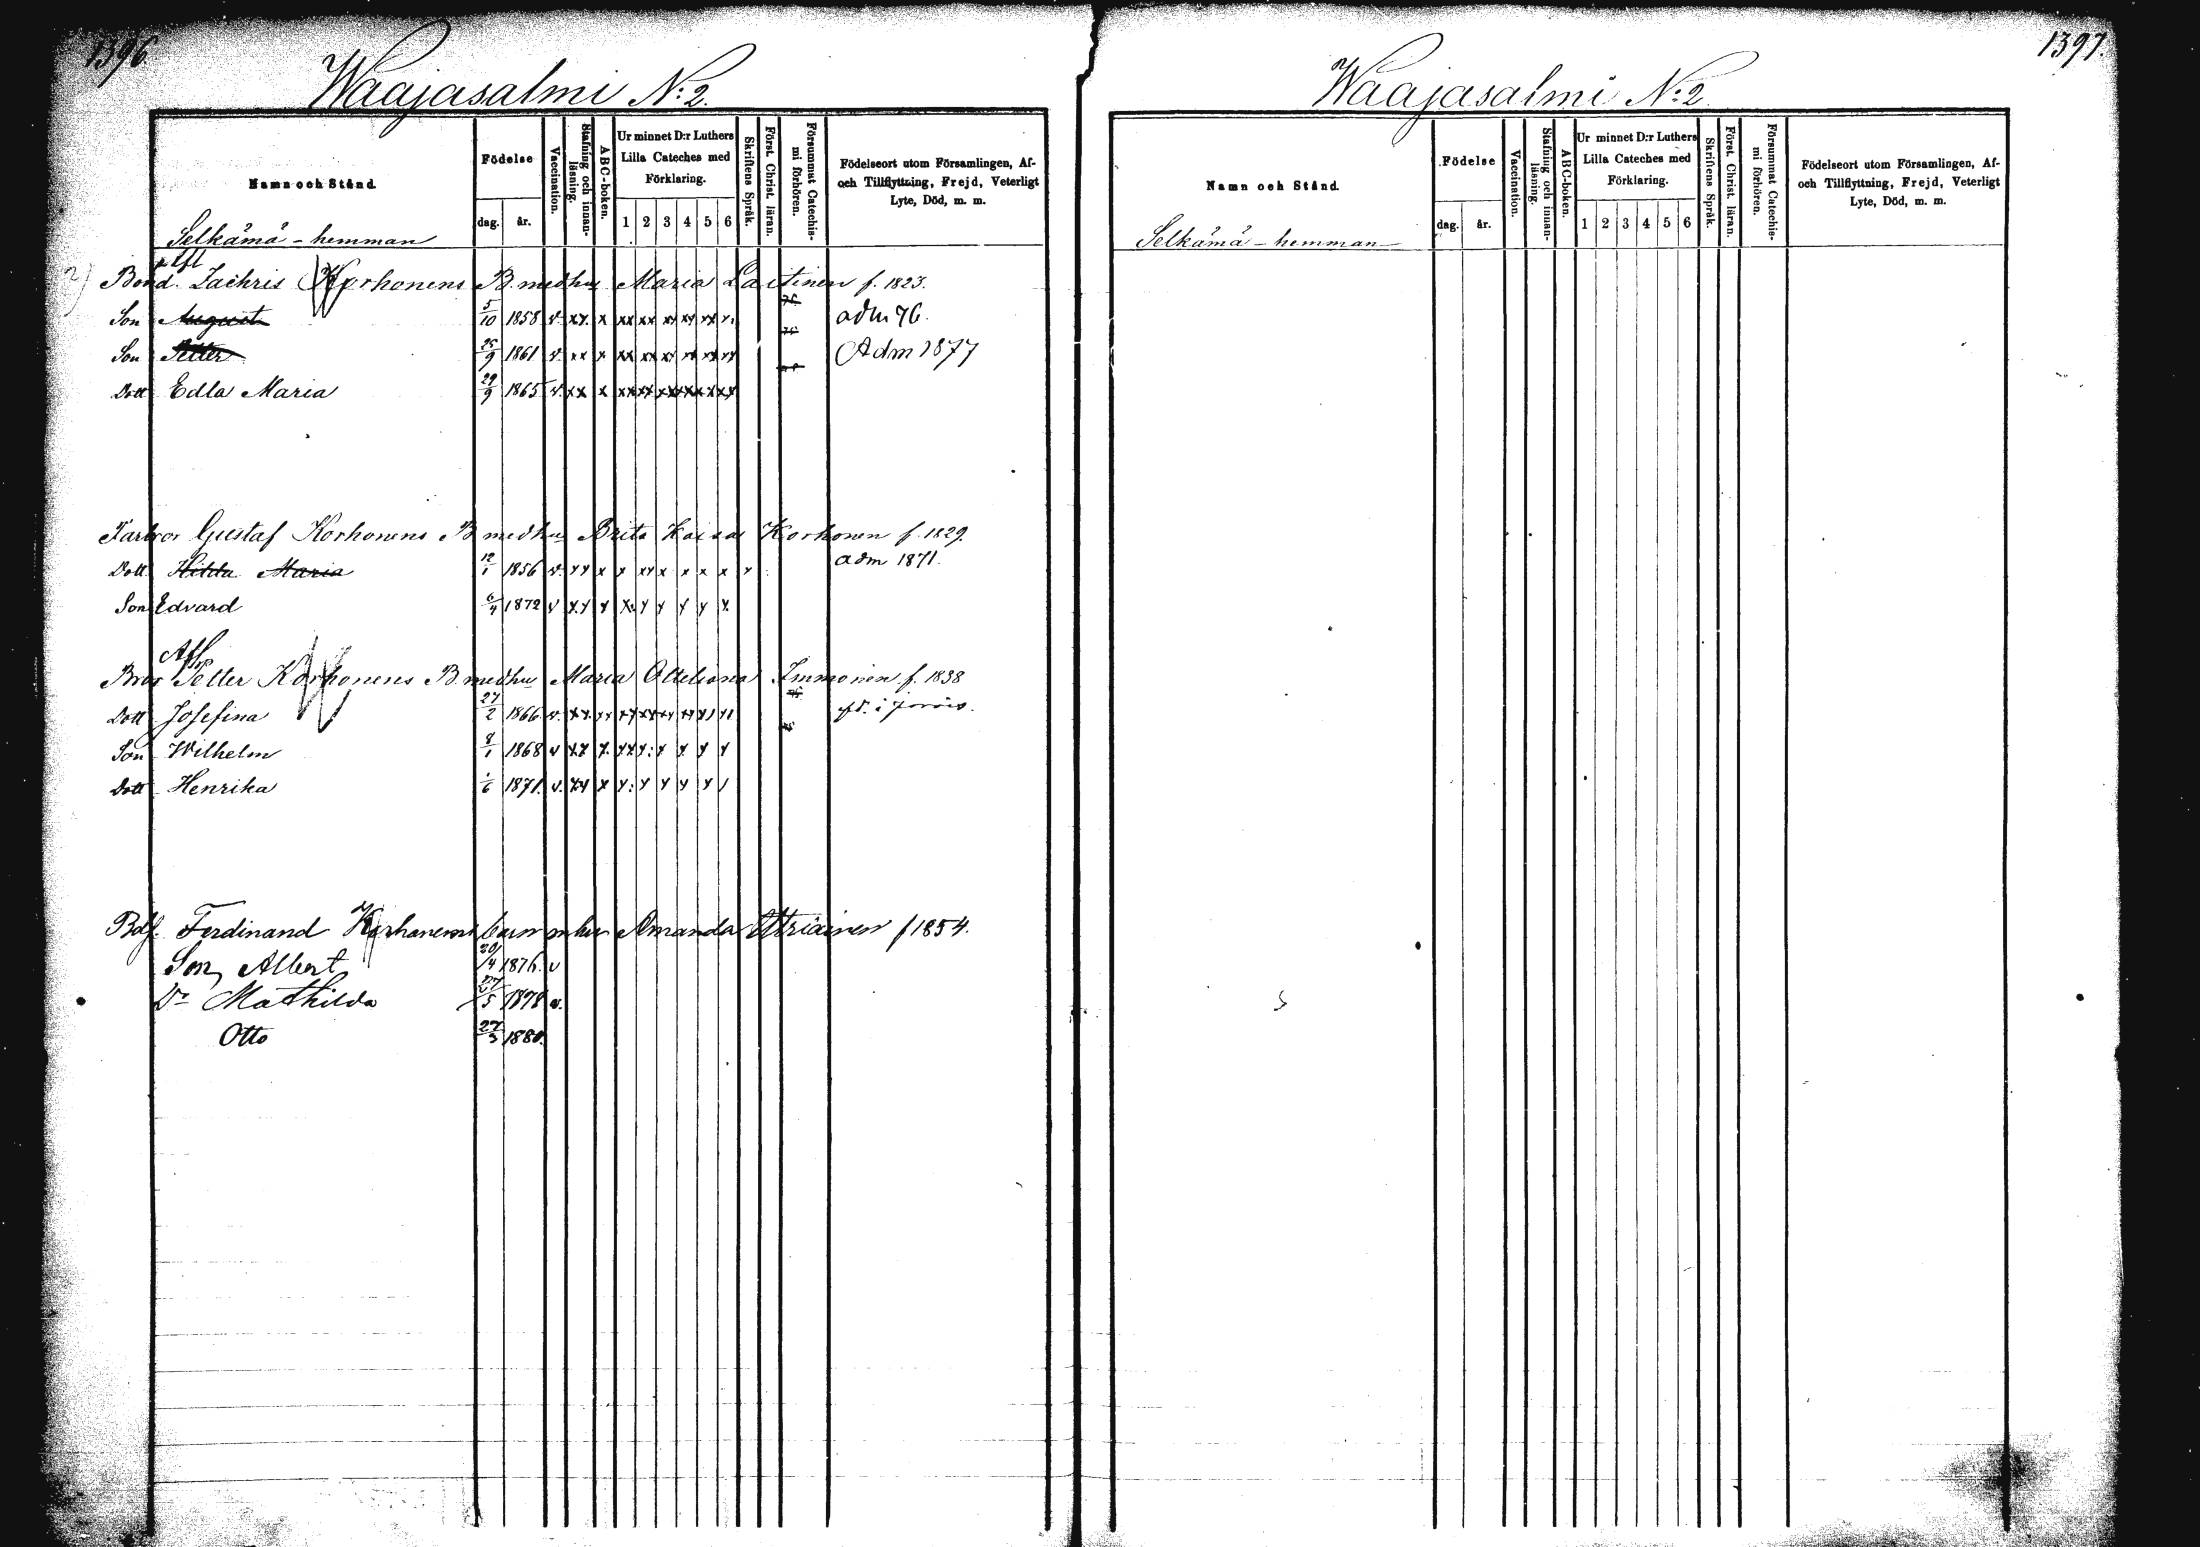 1396.
Waajasalmi N:2.
Namn och Stånd.
Födelse
dag. år.
Vaccination.
Stafning och innanläsning.
ABC-boken.
Ur minnet D:r Luthers Lilla Cateches med Förklaring.
1 2 3 4 5 6
Skriftens Språk.
Först. Christ. läran.
Försummat Catechismi förhören.
Födelseort utom Församlingen, Af- och Tillflyttning, Frejd, Veterligt Lyte, Död, m. m.
Selkämä - hemman
2)
Bond. Zachris Korhonens B. med hu Maria Laitinen f. 1823.
Son August 5/10 1858 v. xx x xx xx xx xx xx x. adm 76.
Son Petter 25/9 1861 v. xx x xx xx xx xx xx xx Adm 1877
Dott Edla Maria 29/9 1865 v. xx x xx xx xx xx xx xx
Farbror Gustaf Korhonens B med hu Brita Kaisa Korhonen f. 1829.
Dott. Hilda Maria 12/1 1856 v. xx x x xx x x x x x adm 1871.
Son Edvard 6/4 1872 v xx x x: x x x x x
Afl
Bror Petter Korhonens B. med hu Maria Ottiliana Immonen f. 1838
Dott Josefina 27/2 1866 v. xx. xx xx xx xx xx x) x) fd. i Jorois.
Son Wilhelm 8/1 1868 v xx x. xx x: x x x x
Dott Henrika 1/6 1871. v. xx x x: x x x x )
Bdf. Ferdinand Korhonens barn m hu Amanda f 1854.
Son Albert 20/4 1876. v
Dr Mathilda 27/5 1878 v.
Otto 27/3 1880.
1397.
Waajasalmi N:2
Namn och Stånd.
Födelse
dag. år.
Vaccination.
Stafning och innanläsning.
ABC-boken.
Ur minnet D:r Luthers Lilla Cateches med Förklaring.
1 2 3 4 5 6
Skriftens Språk.
Först. Christ. läran.
Försummat Catechismi förhören.
Födelseort utom Församlingen, Af- och Tillflyttning, Frejd, Veterligt Lyte, Död, m. m.
Selkämä - hemman